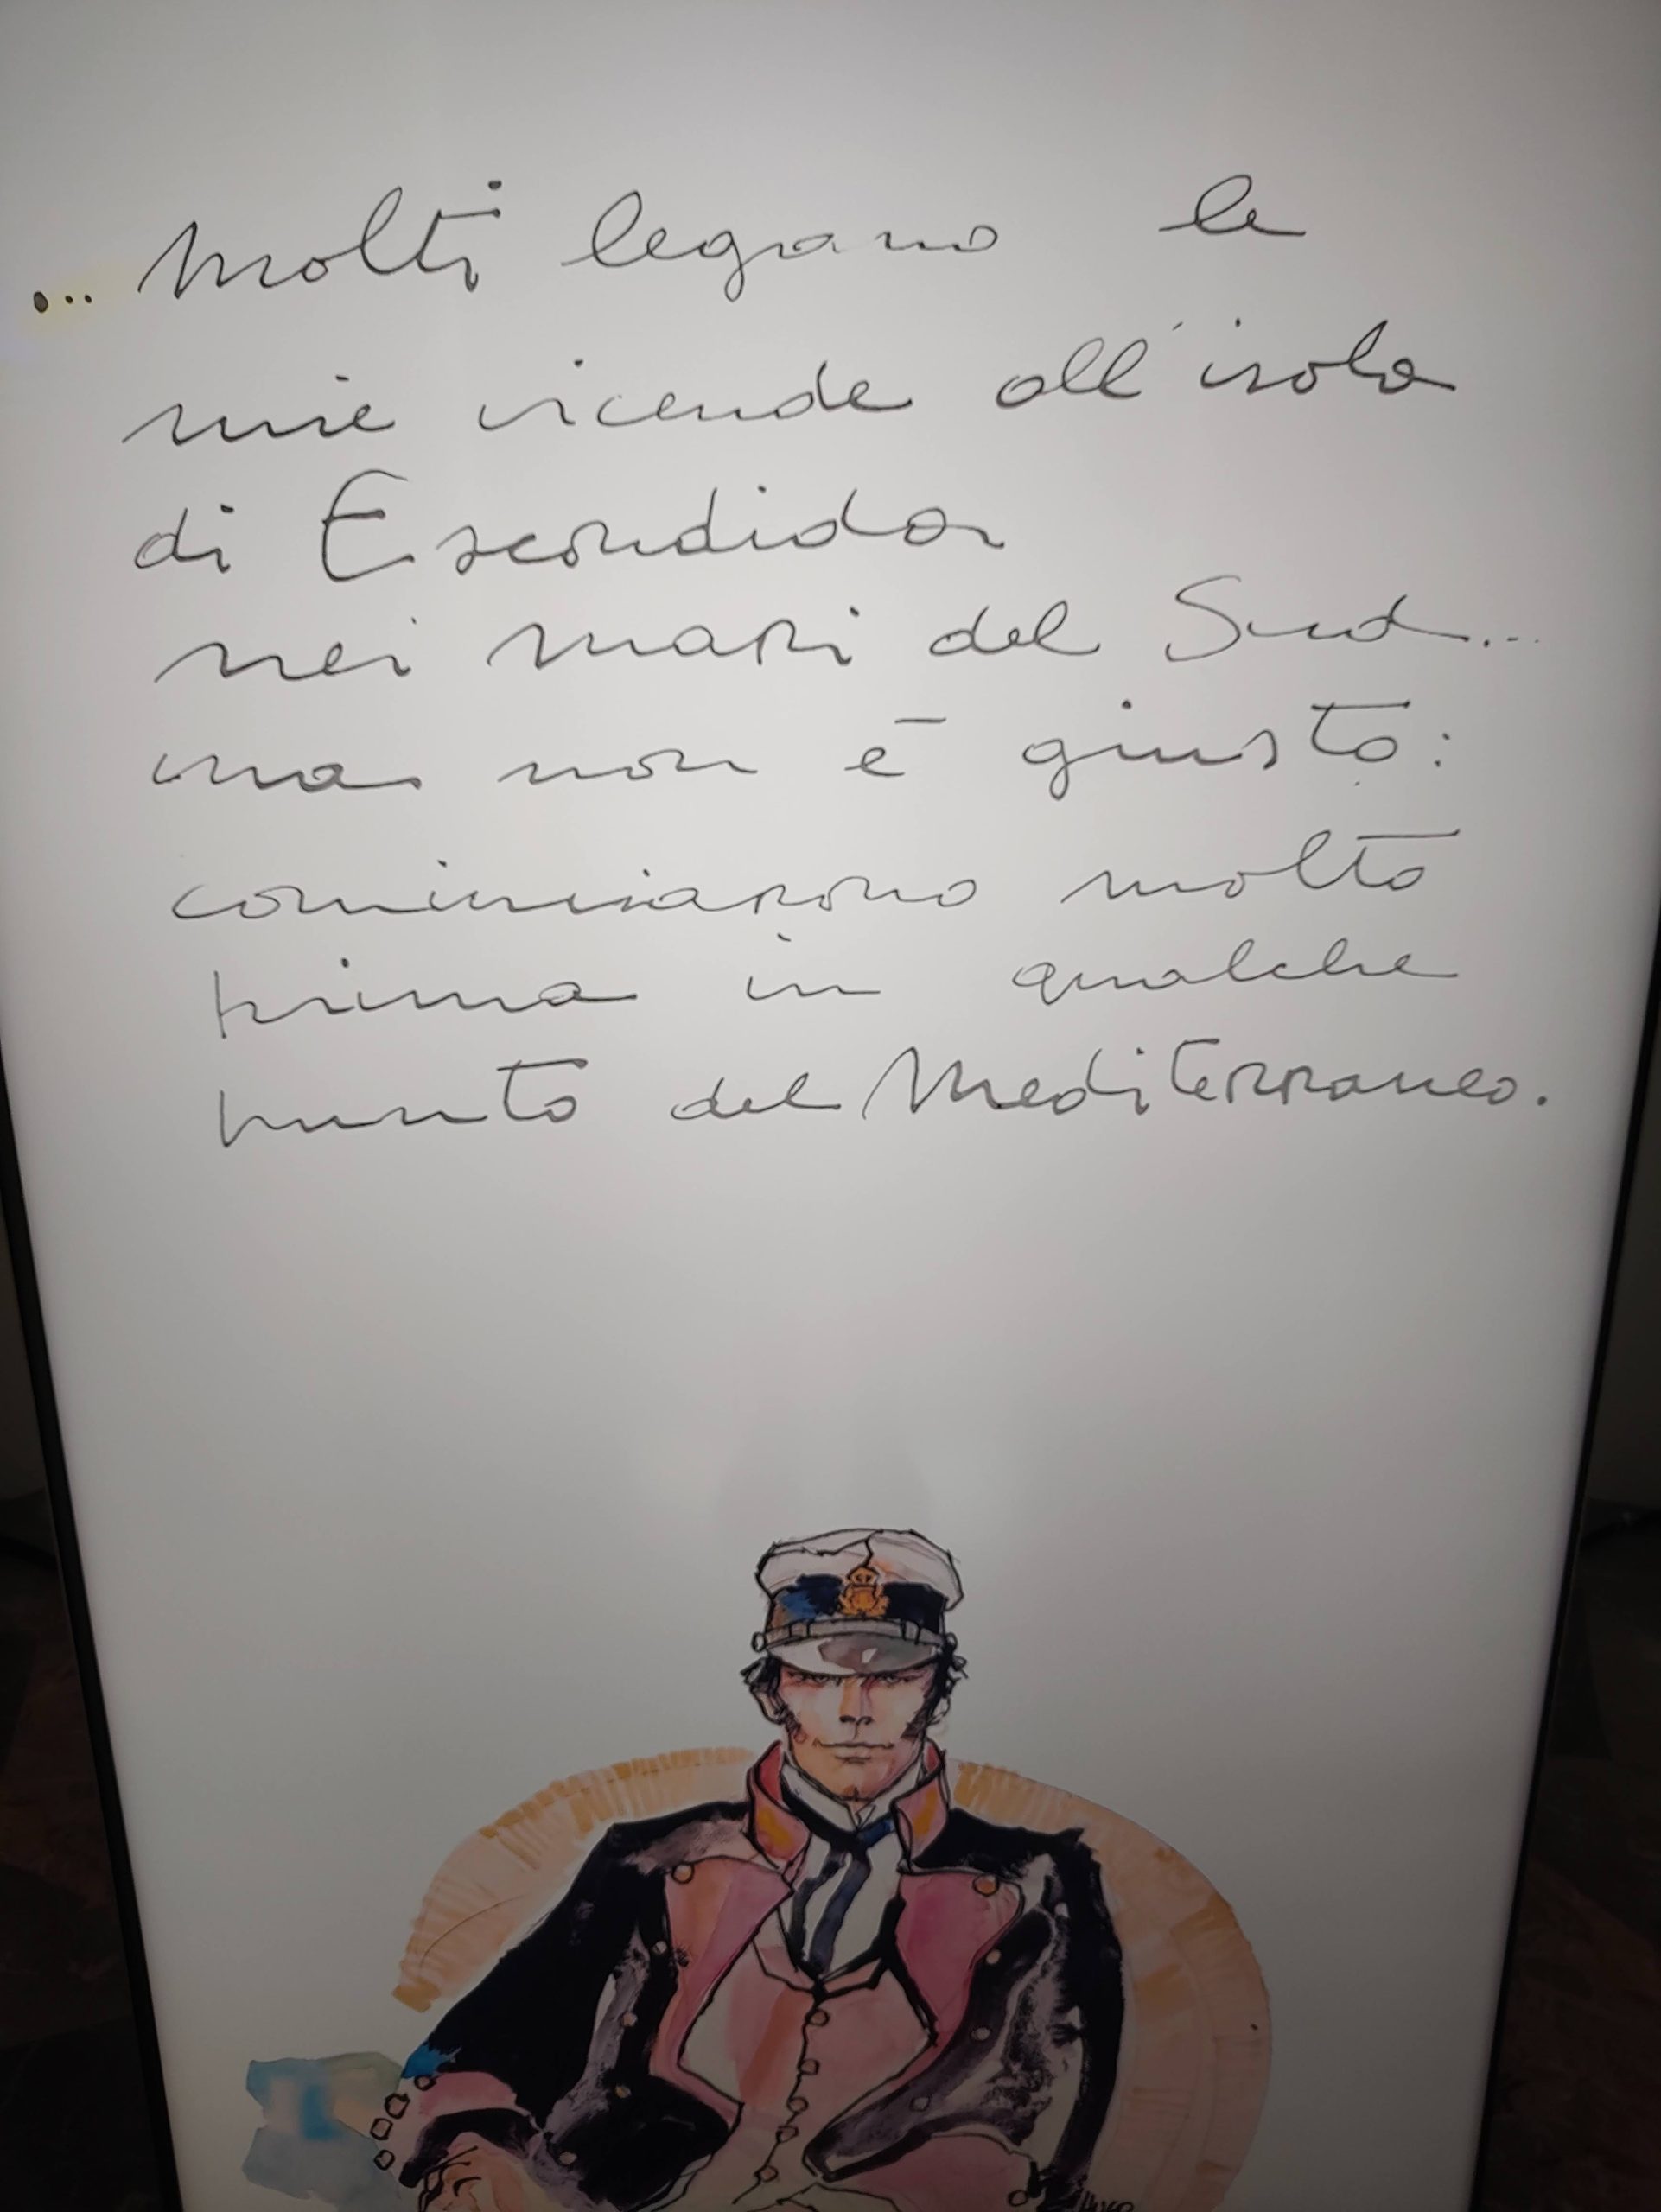 ... Molti legano le
mie vicende all'isola
di Escondida
nei mari del Sud...
ma non è giusto:
cominciarono molto
prima in qualche
punto del Mediterraneo.
Hugo